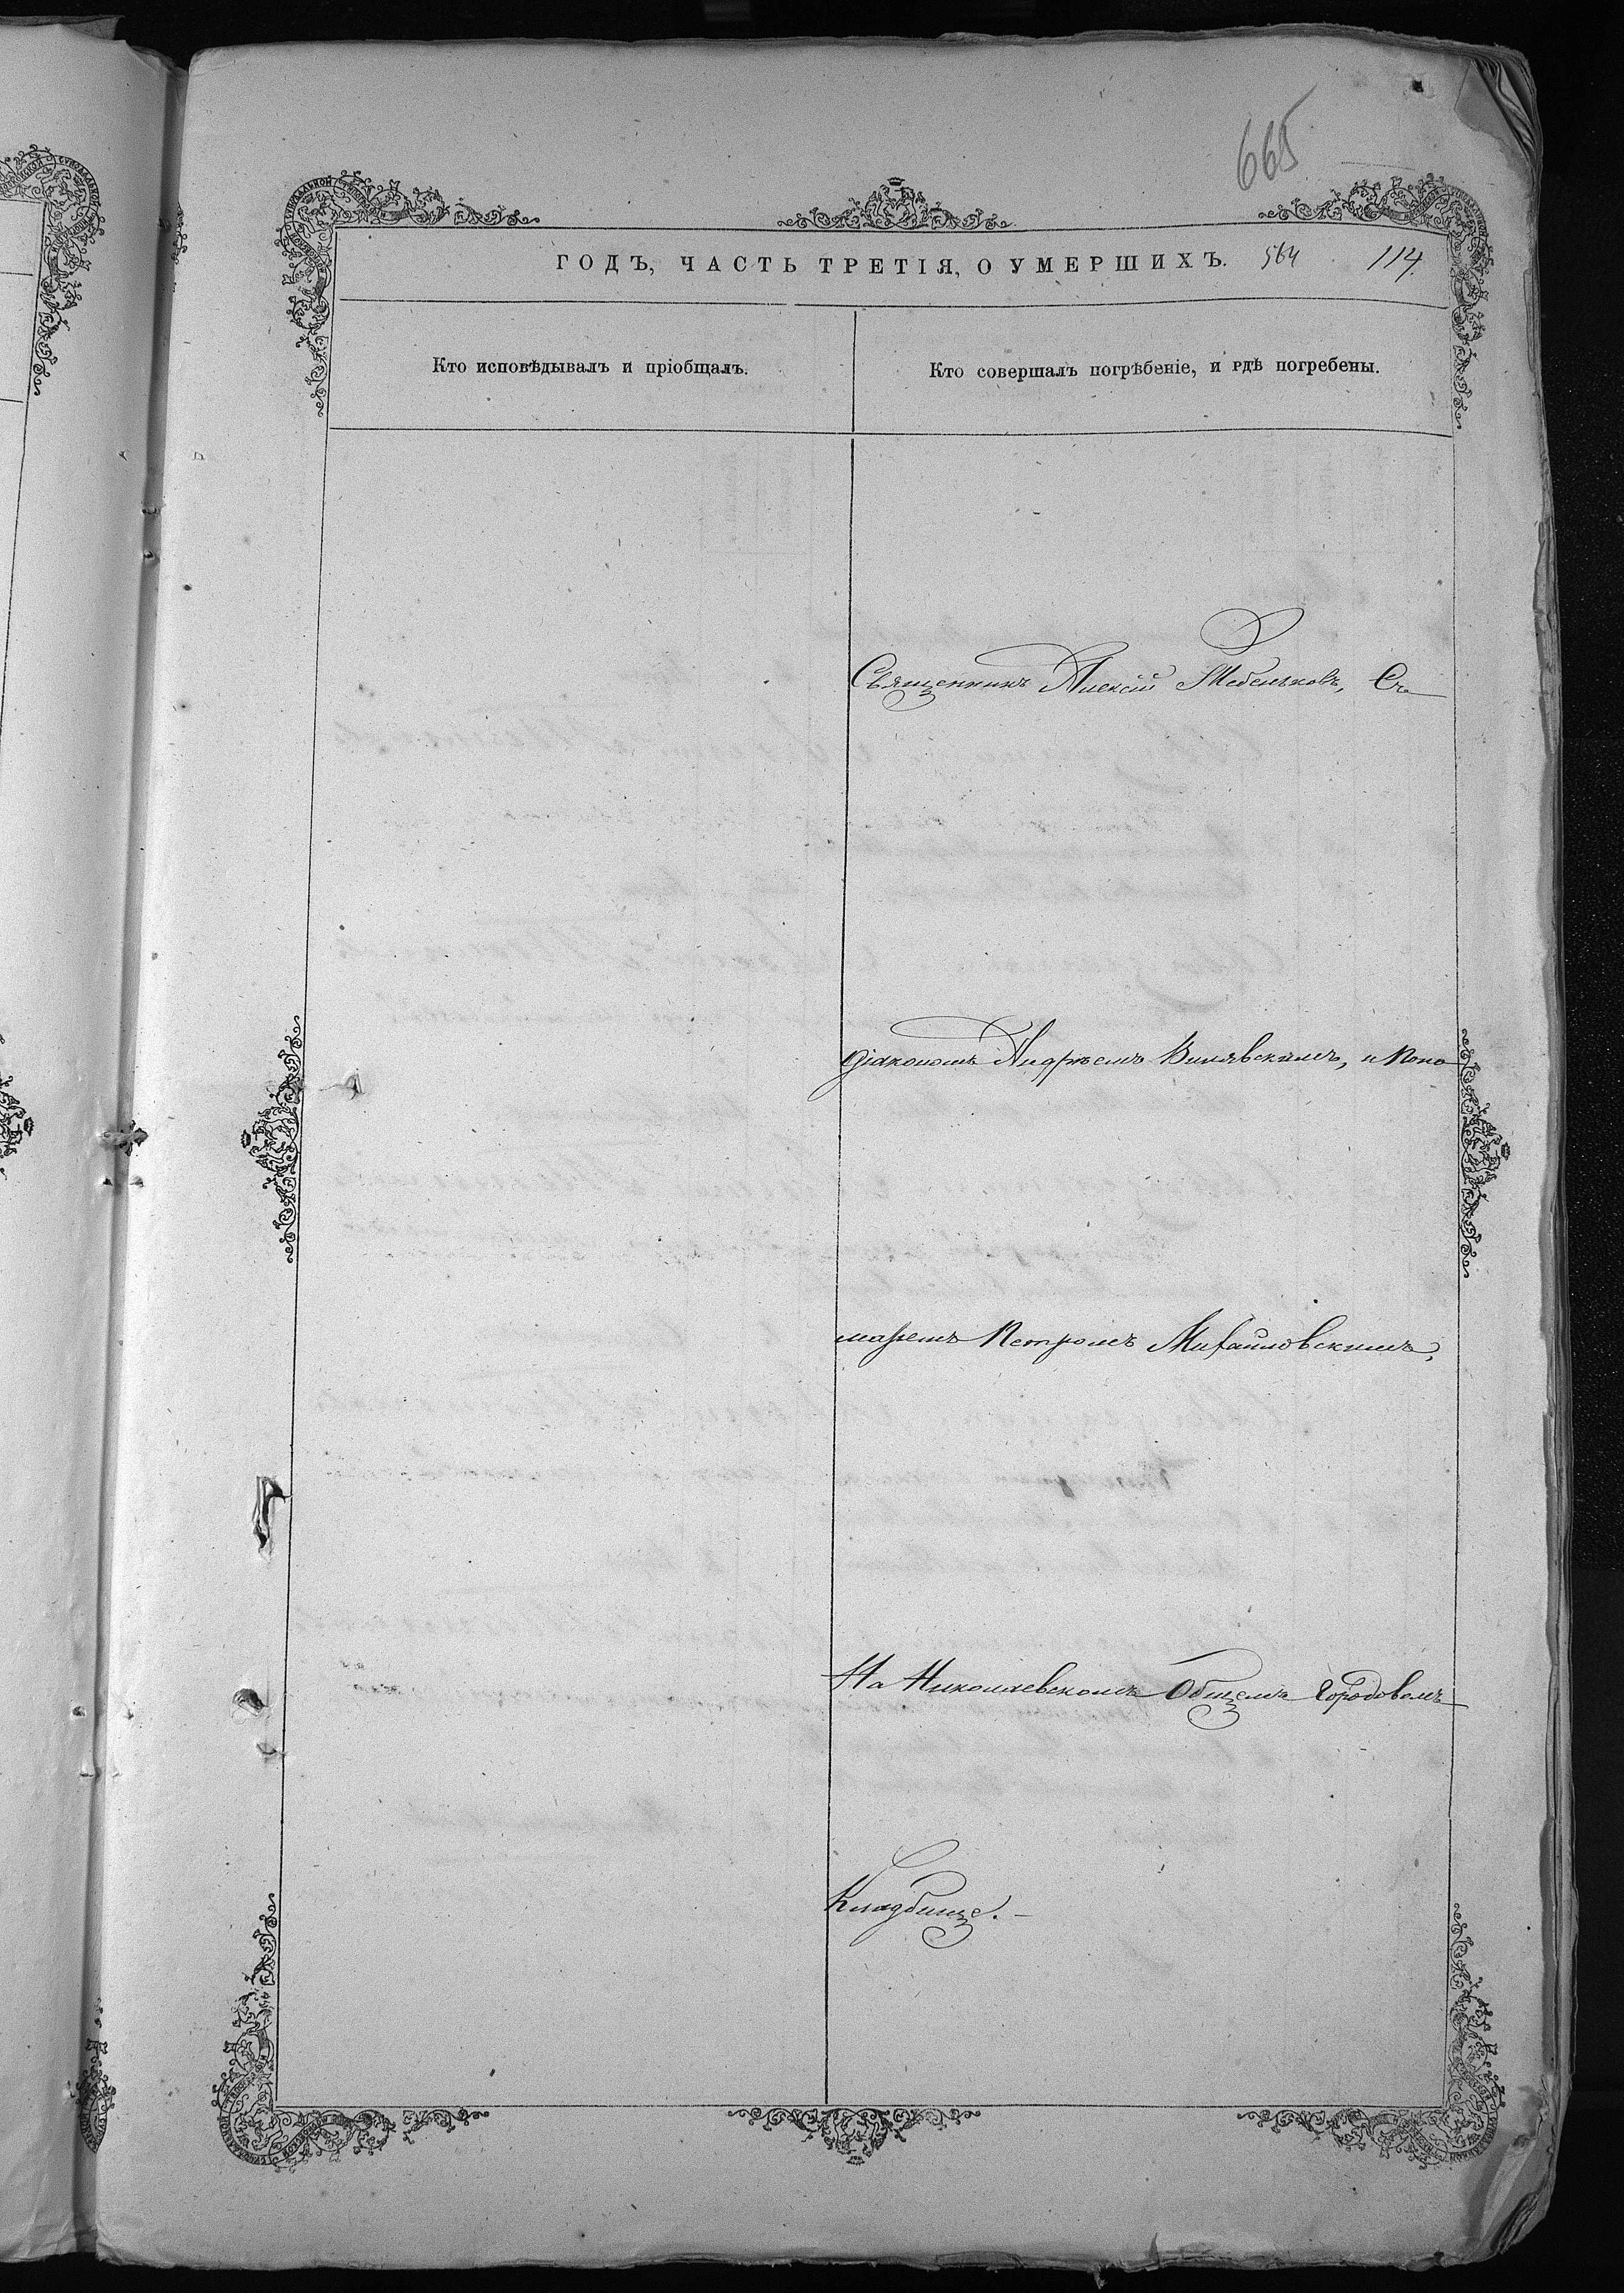 665
ГОДЪ, ЧАСТЬ ТРЕТІЯ, О УМЕРШИХЪ. 564 114
Кто исповѣдывалъ и пріобщалъ.
Кто совершалъ погрѣбеніе, и гдѣ погребены.
Священникъ Алексій Мебельковъ, Съ
Діакономъ Андреемъ Вилявскимъ, и Поно
маремъ Петромъ Михайловскимъ,
На Николаевскомъ Общемъ Городовомъ
Кладбище.